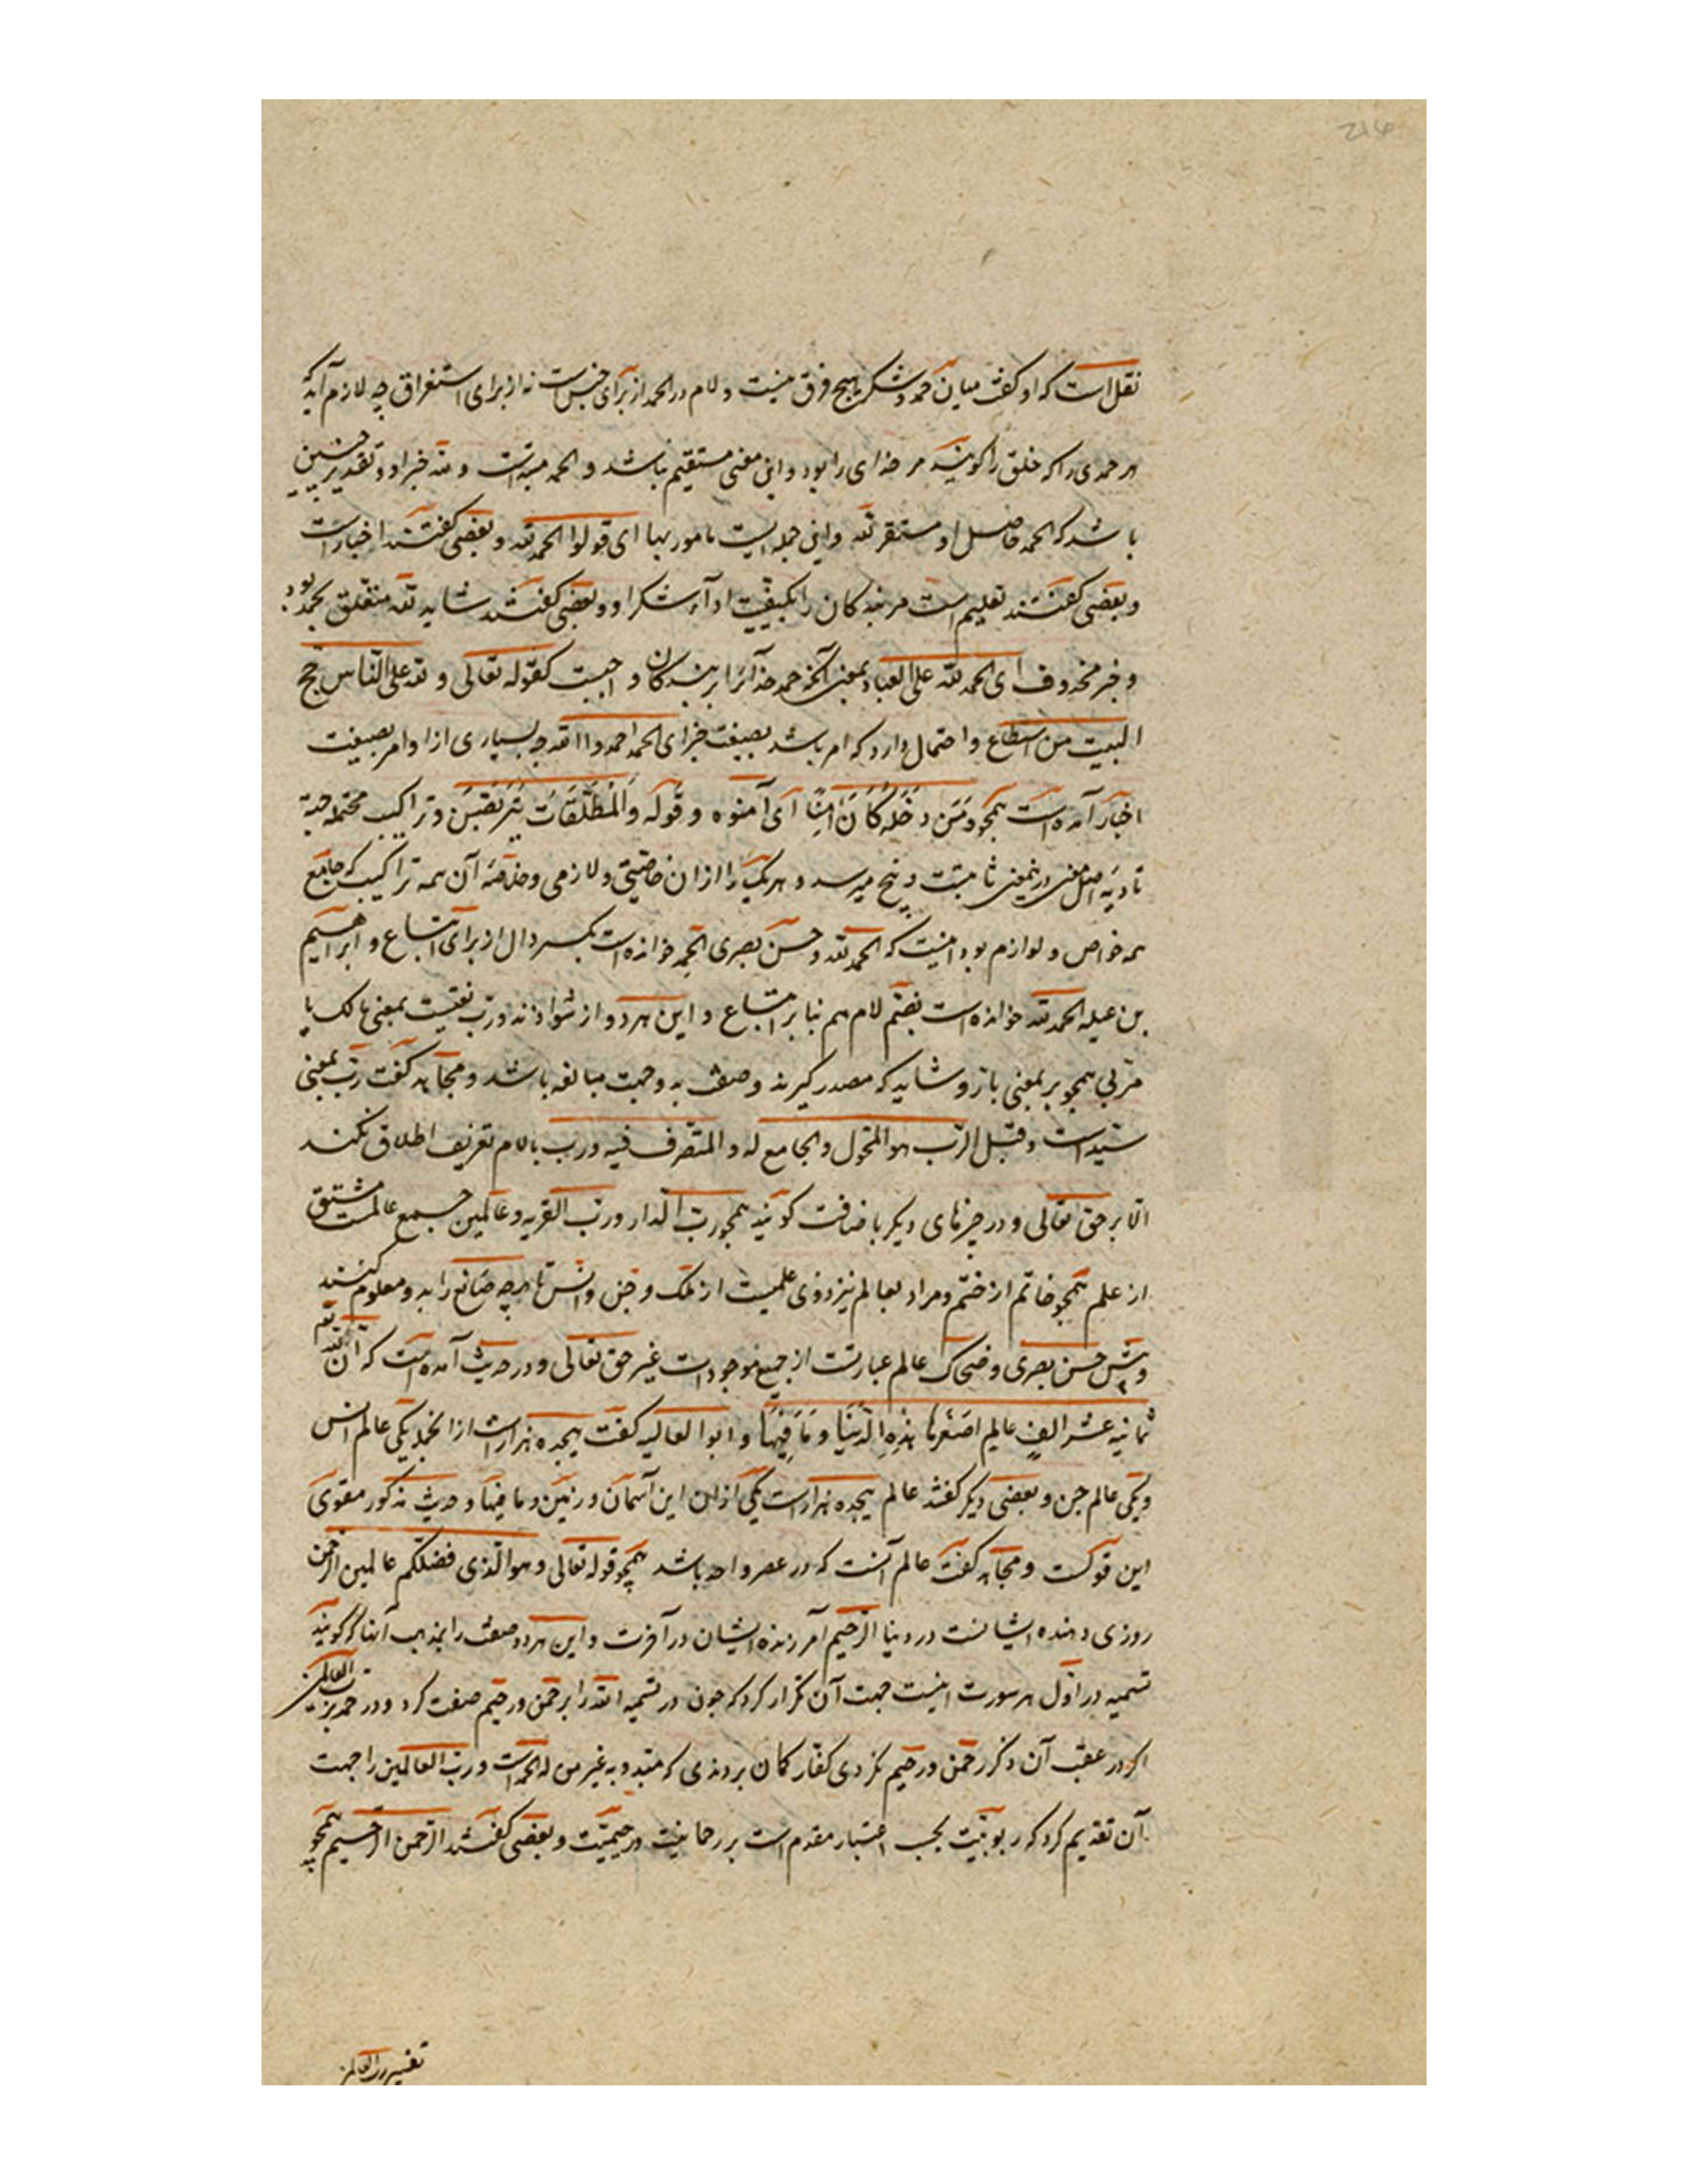 نقل است که او گفت میان حمد و شکر هیچ فرق نیست و لام در الحمد از برای جنس است نه از برای استغراق چه لازم آید که
هر حمدی را که خلق را گویند مر خدای را بود و این معنی مستقیم نباشد و الحمد مبتداست و لله خبر او و تقدیر چنین
باشد که الحمد حاصل او مستقر لله و این جمله ایست مامور بها ای قولوا الحمد لله و بعضی گفتند اخبار است
و بعضی گفتند تعلیم است مر بندکان را بکیفیت ادآء شکر او و بعضی گفتند شاید لله متعلق بحمد بود
و خبر محذوف ای الحمد لله علی العباد بمعنی آنکه حمد خدا را بر بندکان واجبست کقوله تعالی و لله علی الناس حج
البیت من استطاع و احتمال دارد که امر باشد بصیغت خبر ای الحمد احمدوا الله چه بسیاری از اوامر بصیغت
اخبار آمده است همچو وَمَن دَخَلَهُ كَانَ آمِنًا ای آمنوه و قوله وَالْمُطَلَّقَاتُ يَتَرَبَّصْنَ و تراکیب محتمله جهة
تادیه اصل معنی در یمعنی ثابتست و پنج میرسد و هر یک را ازان خاصیتی و لازمی و خلاصه آن همه تراکیب که جامع
همه خواص و لوازم بود اینست که الحمد لله و حسن بصری الحمد خوانده است بکسر دال از برای اتباع و ابراهیم
بن عبله الحمد لله خوانده است بضم لام هم بنا بر اتباع و این هر دو از شواذند و رب نعتیست بمعنی مالک یا
مربی همچو بر بمعنی بار و شاید که مصدر گیرند و صف بدو جهت مبالغه باشد و مجاهد گفت رب بمعنی
سیّد است و قیل الرب هو المحول و الجامع له و المتصرف فیه و رب بالام تعریف اطلاق نکنند
الا بر حق تعالی و در چیزهای دیکر باضافت گویند همچو رب الدار و رب القریه و عالمین جمع عالمست مشتق
از علم همچو خاتم از ختم و مراد بعالم نیز ذوی علمیست از ملک و جن و انس تا هرچه صانع را بدو معلوم کنند
و پیش حسن بصری و ضحاک عالم عبارتست از جمیع موجودات غیر حق تعالی و در حدیث آمده است که ان لله تعه
ثمانیه عشر الف عالم اصغرها هذه الدنیا و ما فیها و ابو العالیه گفت هیجده هزار است از انجمله یکی عالم انس
و یکی عالم جن و بعضی دیکر گفتند عالم هیجده هزار است یکی ازان این آسمان و زمین و ما فیها و حدیث مذکور مقوی
این قولست و مجاهد گفت عالم آنست که در عصر واحد باشد همچو قوله تعالی و هو الذی فضلکم عالمین الرحمن
روزی دهنده ایشانست در دنیا الرحیم آمرزنده ایشان در آخرت و این هر دو صفت را بمذهب آنها که گویند
تسمیه در اول هر سورت اینست جهت آن تکرار کرد که چون در تسمیه الله را برحمن و رحیم صفت کرد و در حمد برب العالمین
اکر در عقب آن ذکر رحمن و رحیم نکردی کفار کمان بردندی که مبتدو به غیر من له الحمد است و رب العالمین را جهت
آن تقدیم کرد که ربوبیت بحسب اعتبار مقدم است بر رحمانیت و رحیمیت و بعضی گفتند الرحمن الرحیم همچو
تفسیر رب العالمین